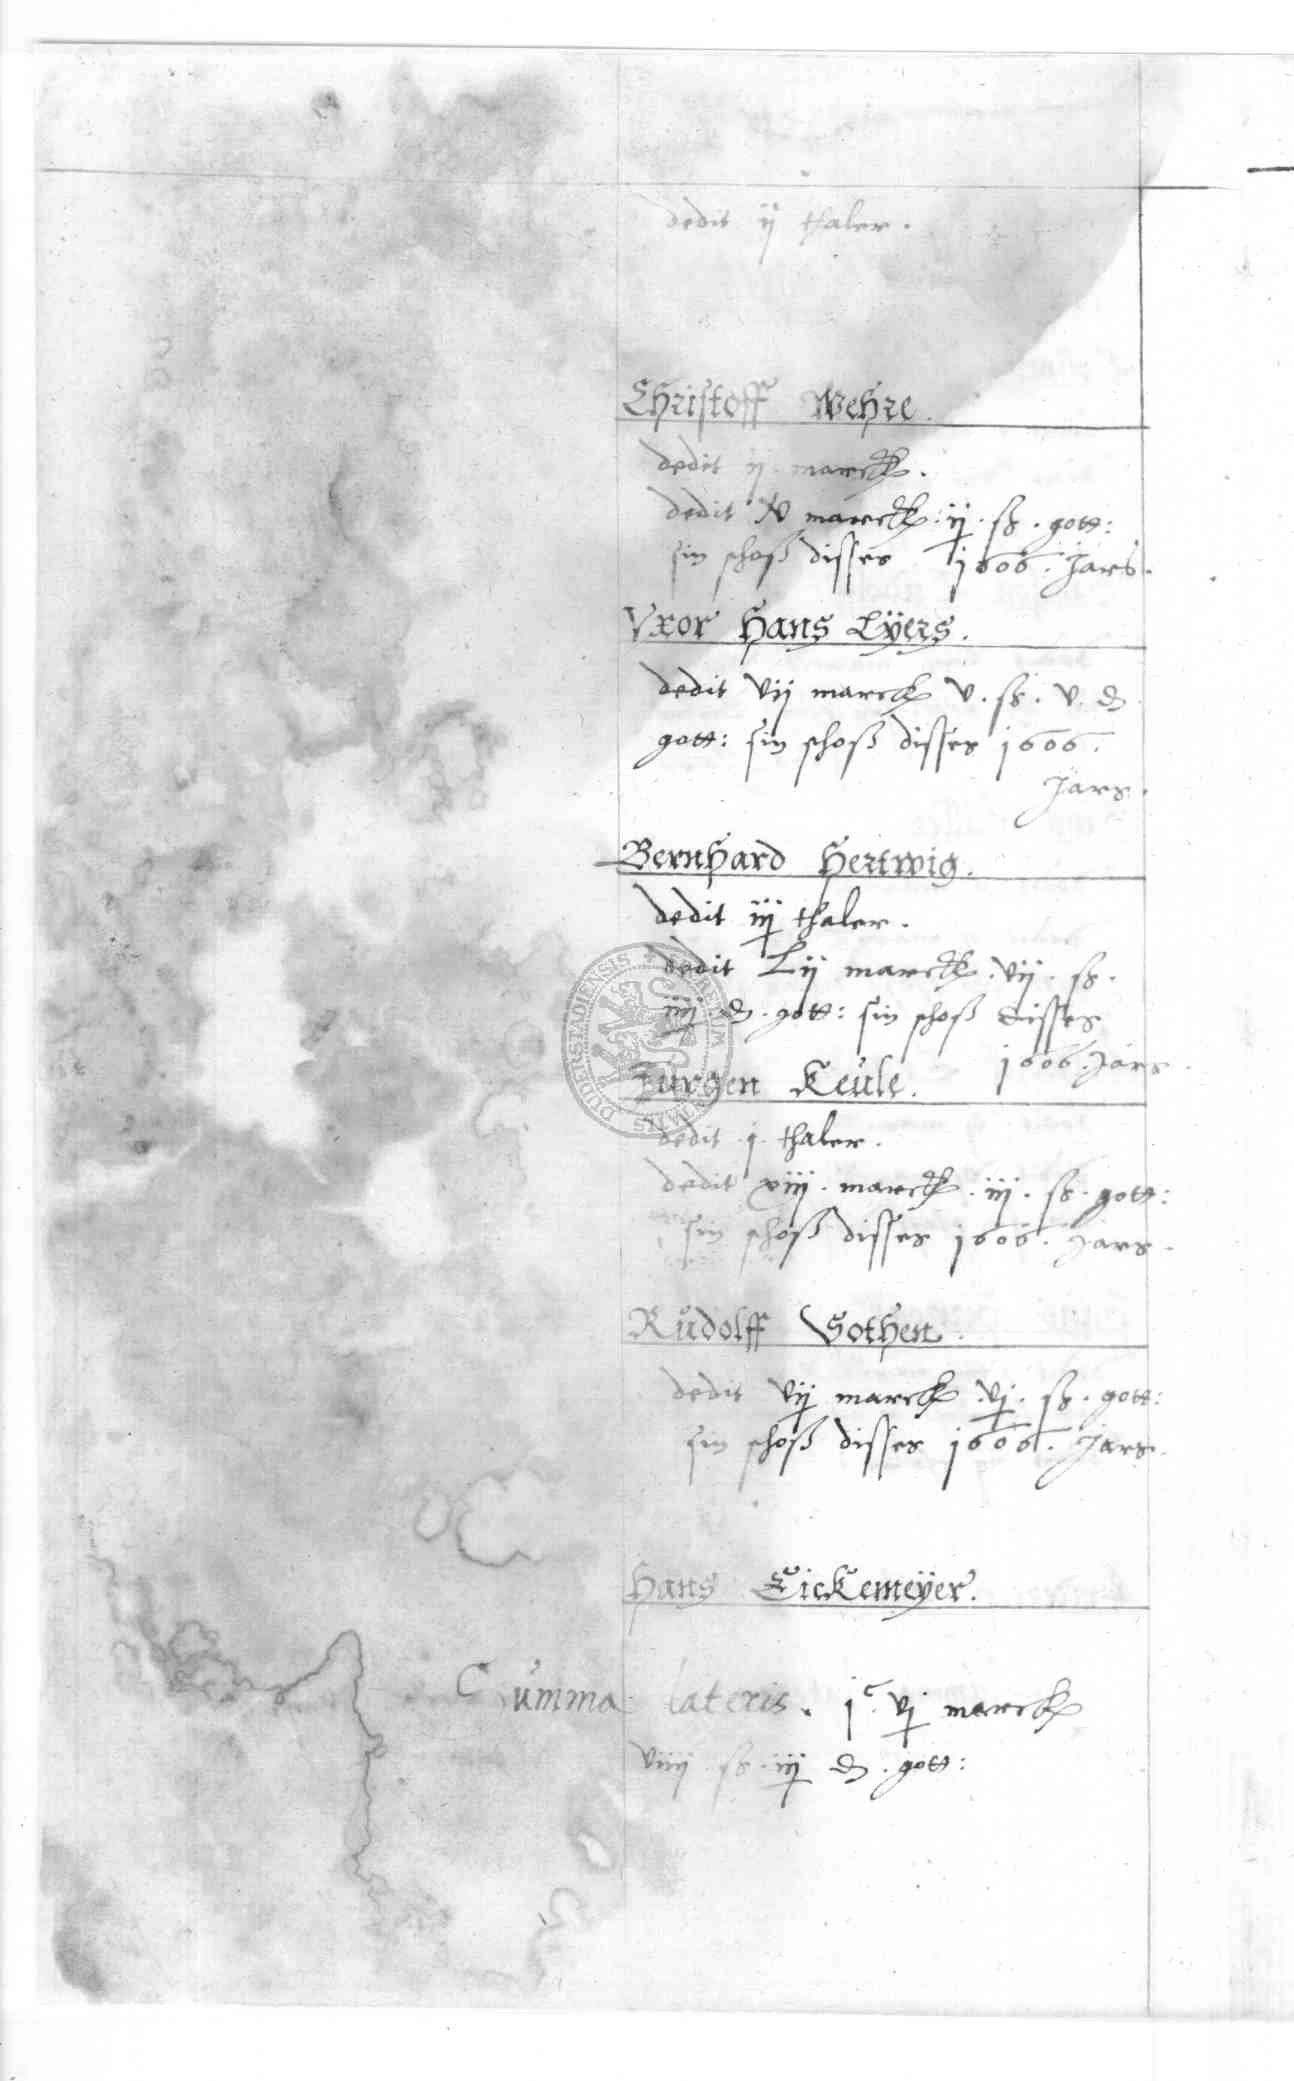 dedit ij thaler.
Christoff Wehre.
dedit ij. marck.
dedit marck. ij. ß. gott:
sin schoß disses 1606. Jars.
Vxor Hans Lÿers.
dedit vij marck v. ß. v. d
gott: sin schoß disses 1606.
Jars.
Bernhard Hertwig.
dedit iij thaler.
dedit Lij marck. vij. ß.
iiij. d. gott: sin schoß disses
1606. Jars
Jurgen Keule.
dedit j. thaler.
dedit xiij. marck. iij. ß. gott:
sin schoß disses 1606. Jars.
Rudolff Gothen.
dedit vij marck vj. ß. gott:
sin schoß disses 1606. Jars.
Hans Eickemeÿer.
Summa lateris. jc vj marck
viiij ß. iij d. gott: